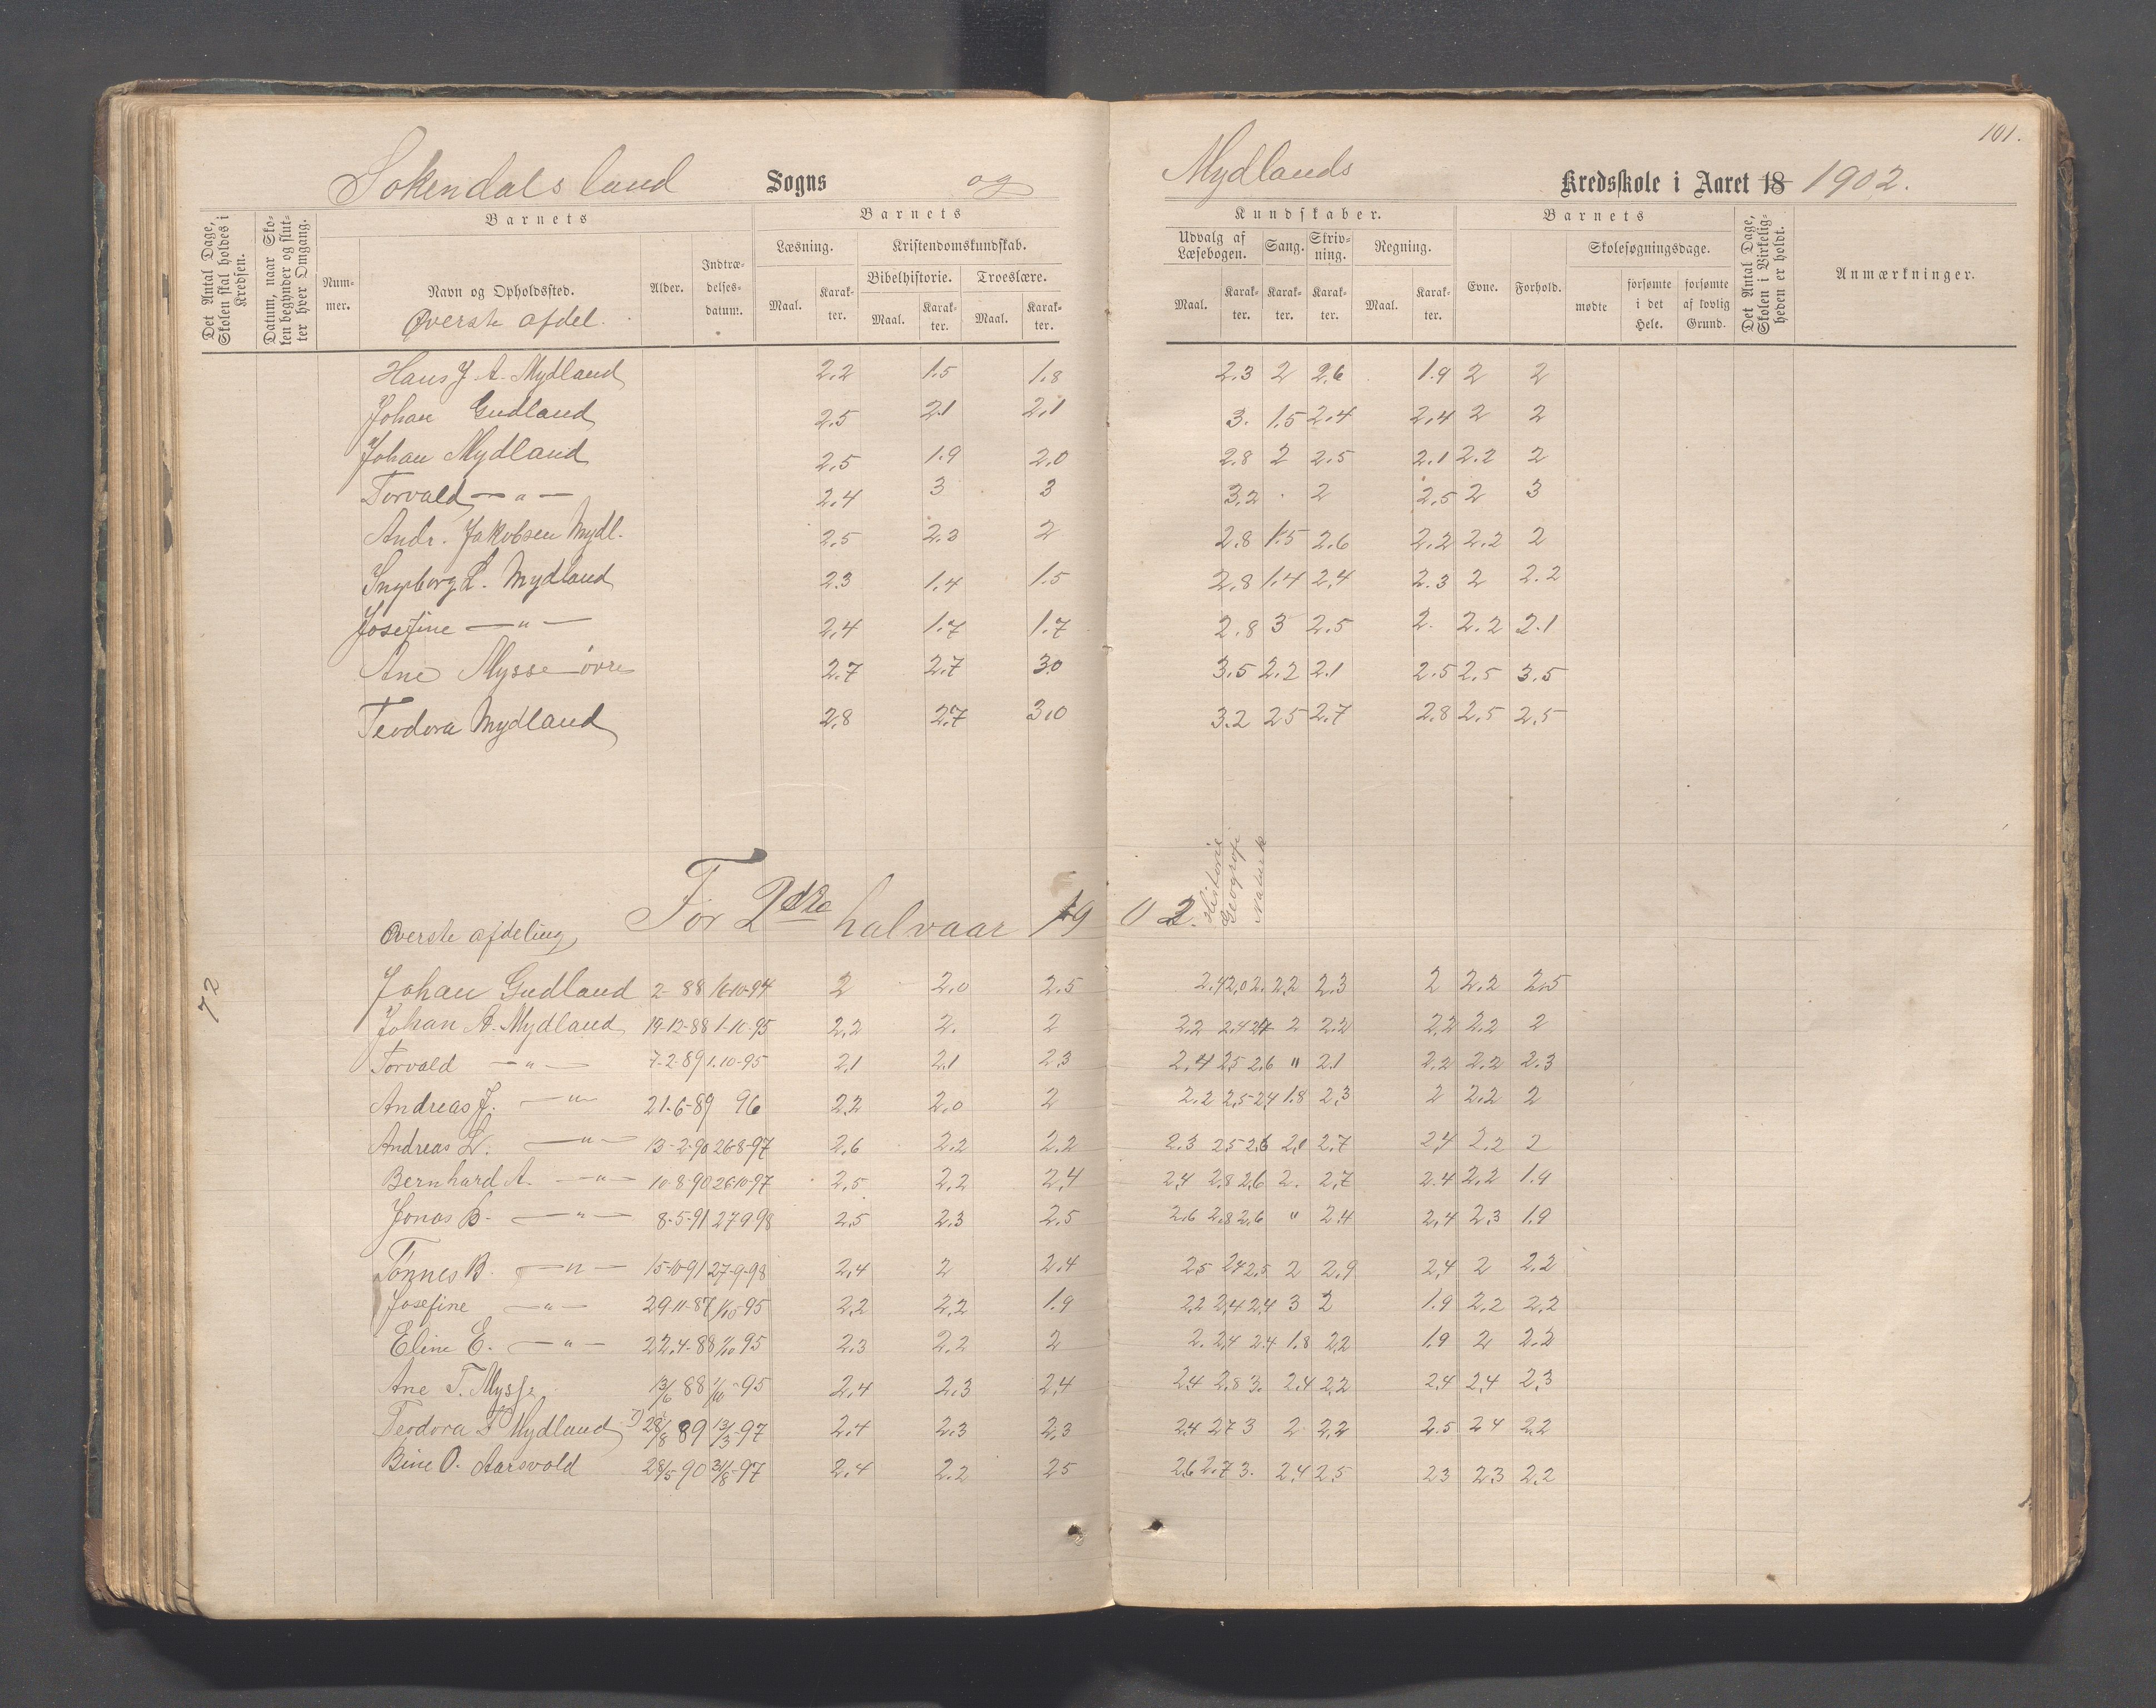 101.
Sokendals land Sogns og Mydlands Kredsskole i Aaret 18 1902.
Det Antal Dage, Skolen skal holdes i Kredsen.
Datum, naar Skolen begynder og slutter hver Omgang.
Barnets
Nummer.
Navn og Opholdssted.
Øverste afdel.
Alder.
Indtrædelses-datum.
Barnets
Læsning.
Maal. Karakter.
Kristendomskundskab.
Bibelhistorie. Troeslære.
Maal. Karakter. Maal. Karakter.
Kundskaber.
Udvalg af Læsebogen. Sang. Skrivning. Regning.
Maal. Karakter. Karakter. Karakter. Maal. Karakter.
Barnets
Evne. Forhold.
Skolesøgningsdage.
mødte forsømte i det Hele. forsømte af lovlig Grund.
Det Antal Dage, Skolen i Virkeligheden er holdt.
Anmærkninger.
Hans J. A. Mydland 2.2 1.5 1.8 2.3 2 2.6 1.9 2 2
Johan Gudland 2.5 2.1 2.1 3. 1.5 2.4 2.4 2 2
Johan Mydland 2.5 1.9 2.0 2.8 2 2.5 2.1 2.2 2
Torvald — " — 2.4 3 3 3.2 . 2 2.5 2 3
Andr. Jakobsen Mydl. 2.5 2.2 2 2.8 1.5 2.6 2.2 2.2 2
Ingeborg L. Mydland 2.3 1.4 1.5 2.8 1.4 2.4 2.3 2 2.2
Josefine — " — 2.4 1.7 1.7 2.8 3 2.5 2. 2.2 2.1
Ane Mysse øvre 2.7 2.7 3.0 3.5 2.2 2.1 2.5 2.5 3.5
Teodora Mydland 2.8 2.7 3.0 3.2 2.5 2.7 2.8 2.5 2.5
For 2dre halvaar 1902.
Historie
Geografi
Naturk
Øverste afdeling
72
Johan Gudland 2- 88 16-10-94 2 2.0 2.5 2.4 2.0 2. 2.2 2.3 2 2.2 2.5
Johan A. Mydland 19-12-88 1-10-95 2.2 2. 2 2.2 2.4 2.7 2 2.2 2.2 2.2 2
Torvald — " — 7-2-89 1.10-95 2.1 2.1 2.3 2.4 2.5 2.6 " 2.1 2.2 2.2 2.3
Andreas J. — " — 21-6-89 96 2.2 2.0 2 2.2 2.5 2.4 1.8 2.3 2 2.2 2
Andreas L. — " — 13-2-90 26-8-97 2.6 2.2 2.2 2.3 2.5 2.6 2.1 2.7 2.4 2.2 2
Bernhard A. — " — 10-8-90 26-10-97 2.5 2.2 2.4 2.4 2.8 2.6 2. 2.7 2.4 2.2 1.9
Jonas B. — " — 8-5-91 27 9 98 2.5 2.3 2.5 2.6 2.8 2.6 " 2.4 2.4 2.3 1.9
Tønnes B. — " — 15-10-91 27-9-98 2.4 2 2.4 2.5 2.4 2.5 2 2.9 2.4 2 2.2
Josefine — " — 29-11-87 1/10-95 2.2 2.2 1.9 2.2 2.4 2.4 3 2 1.9 2.2 2.2
Eline E. — " — 22.4-88 1/10 95 2.3 2.2 2 2. 2.4 2.4 1.8 2.2 1.9 2 2.2
Ane T. Mysse 13/6 88 1/10-95 2.4 2.3 2.4 2.4 2.8 3. 2.4 2.2 2.4 2.4 2.3
Teodora T Mydland 28/8 89 13/3-97 2.4 2.3 2.3 2.4 2.7 3 2 2.2 2.5 2.4 2.2
Bine O. Aarsvold 28/5-90 31/8-97 2.4 2.2 2.5 2.6 2.7 3. 2.4 2.5 2.3 2.3 2.2